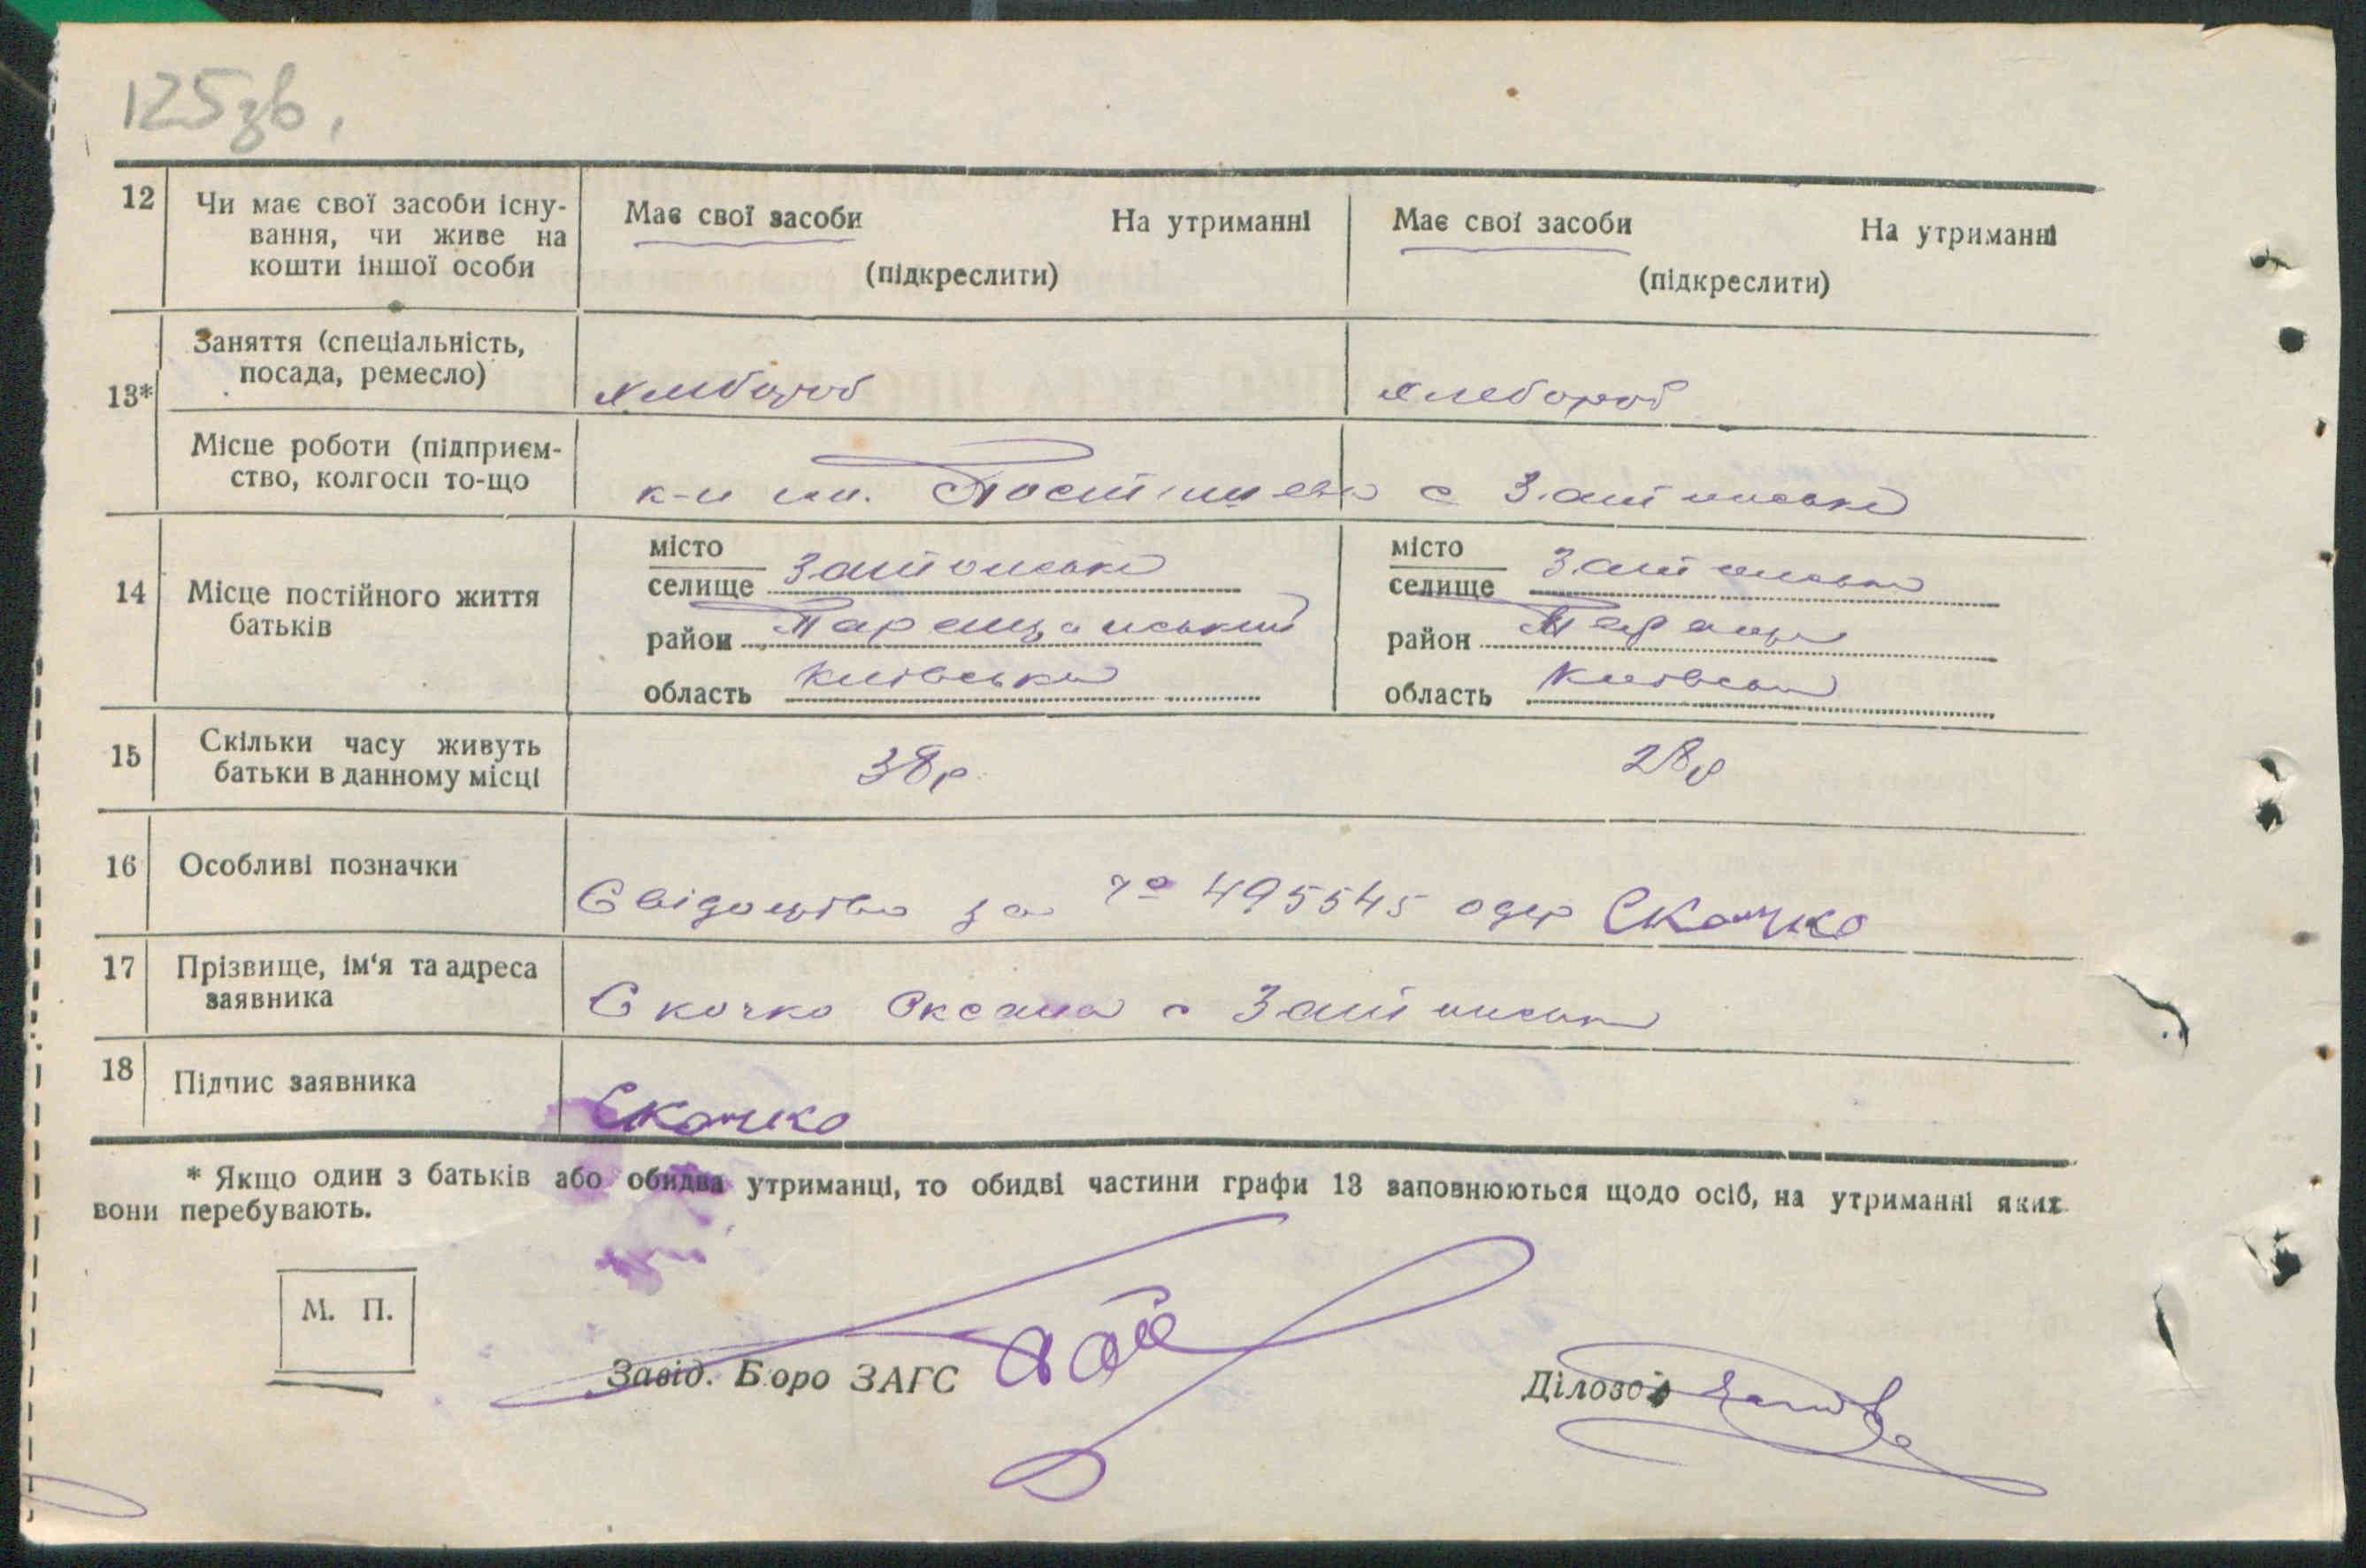 125зв.
12 Чи має свої засоби існу-
вання, чи живе на
кошти іншої особи
Має свої засоби На утриманні
(підкреслити)
Має свої засоби На утриманні
(підкреслити)
13*
Заняття (спеціальність,
посада, ремесло)
хлебороб
хлебороб
Місце роботи (підприєм-
ство, колгосп то-що
к-п ім. Постишева с
14 Місце постійного життя
батьків
місто
селище
район Таращанський
область київська
місто
селище
район Таращ
область Київськ
15 Скільки часу живуть
батьки в данному місці
38р.
28р
16 Особливі позначки
Свідоцтво за № 495545 одер Скочко
17 Прізвище, ім‘я та адреса
заявника
Скочко Оксана с
18 Підпис заявника
Скочко
* Якщо один з батьків або обидва утриманці, то обидві частини графи 13 заповнюються щодо осіб, на утриманні яких
вони перебувають.
М. П.
Завід. Бюро ЗАГС
Діловод